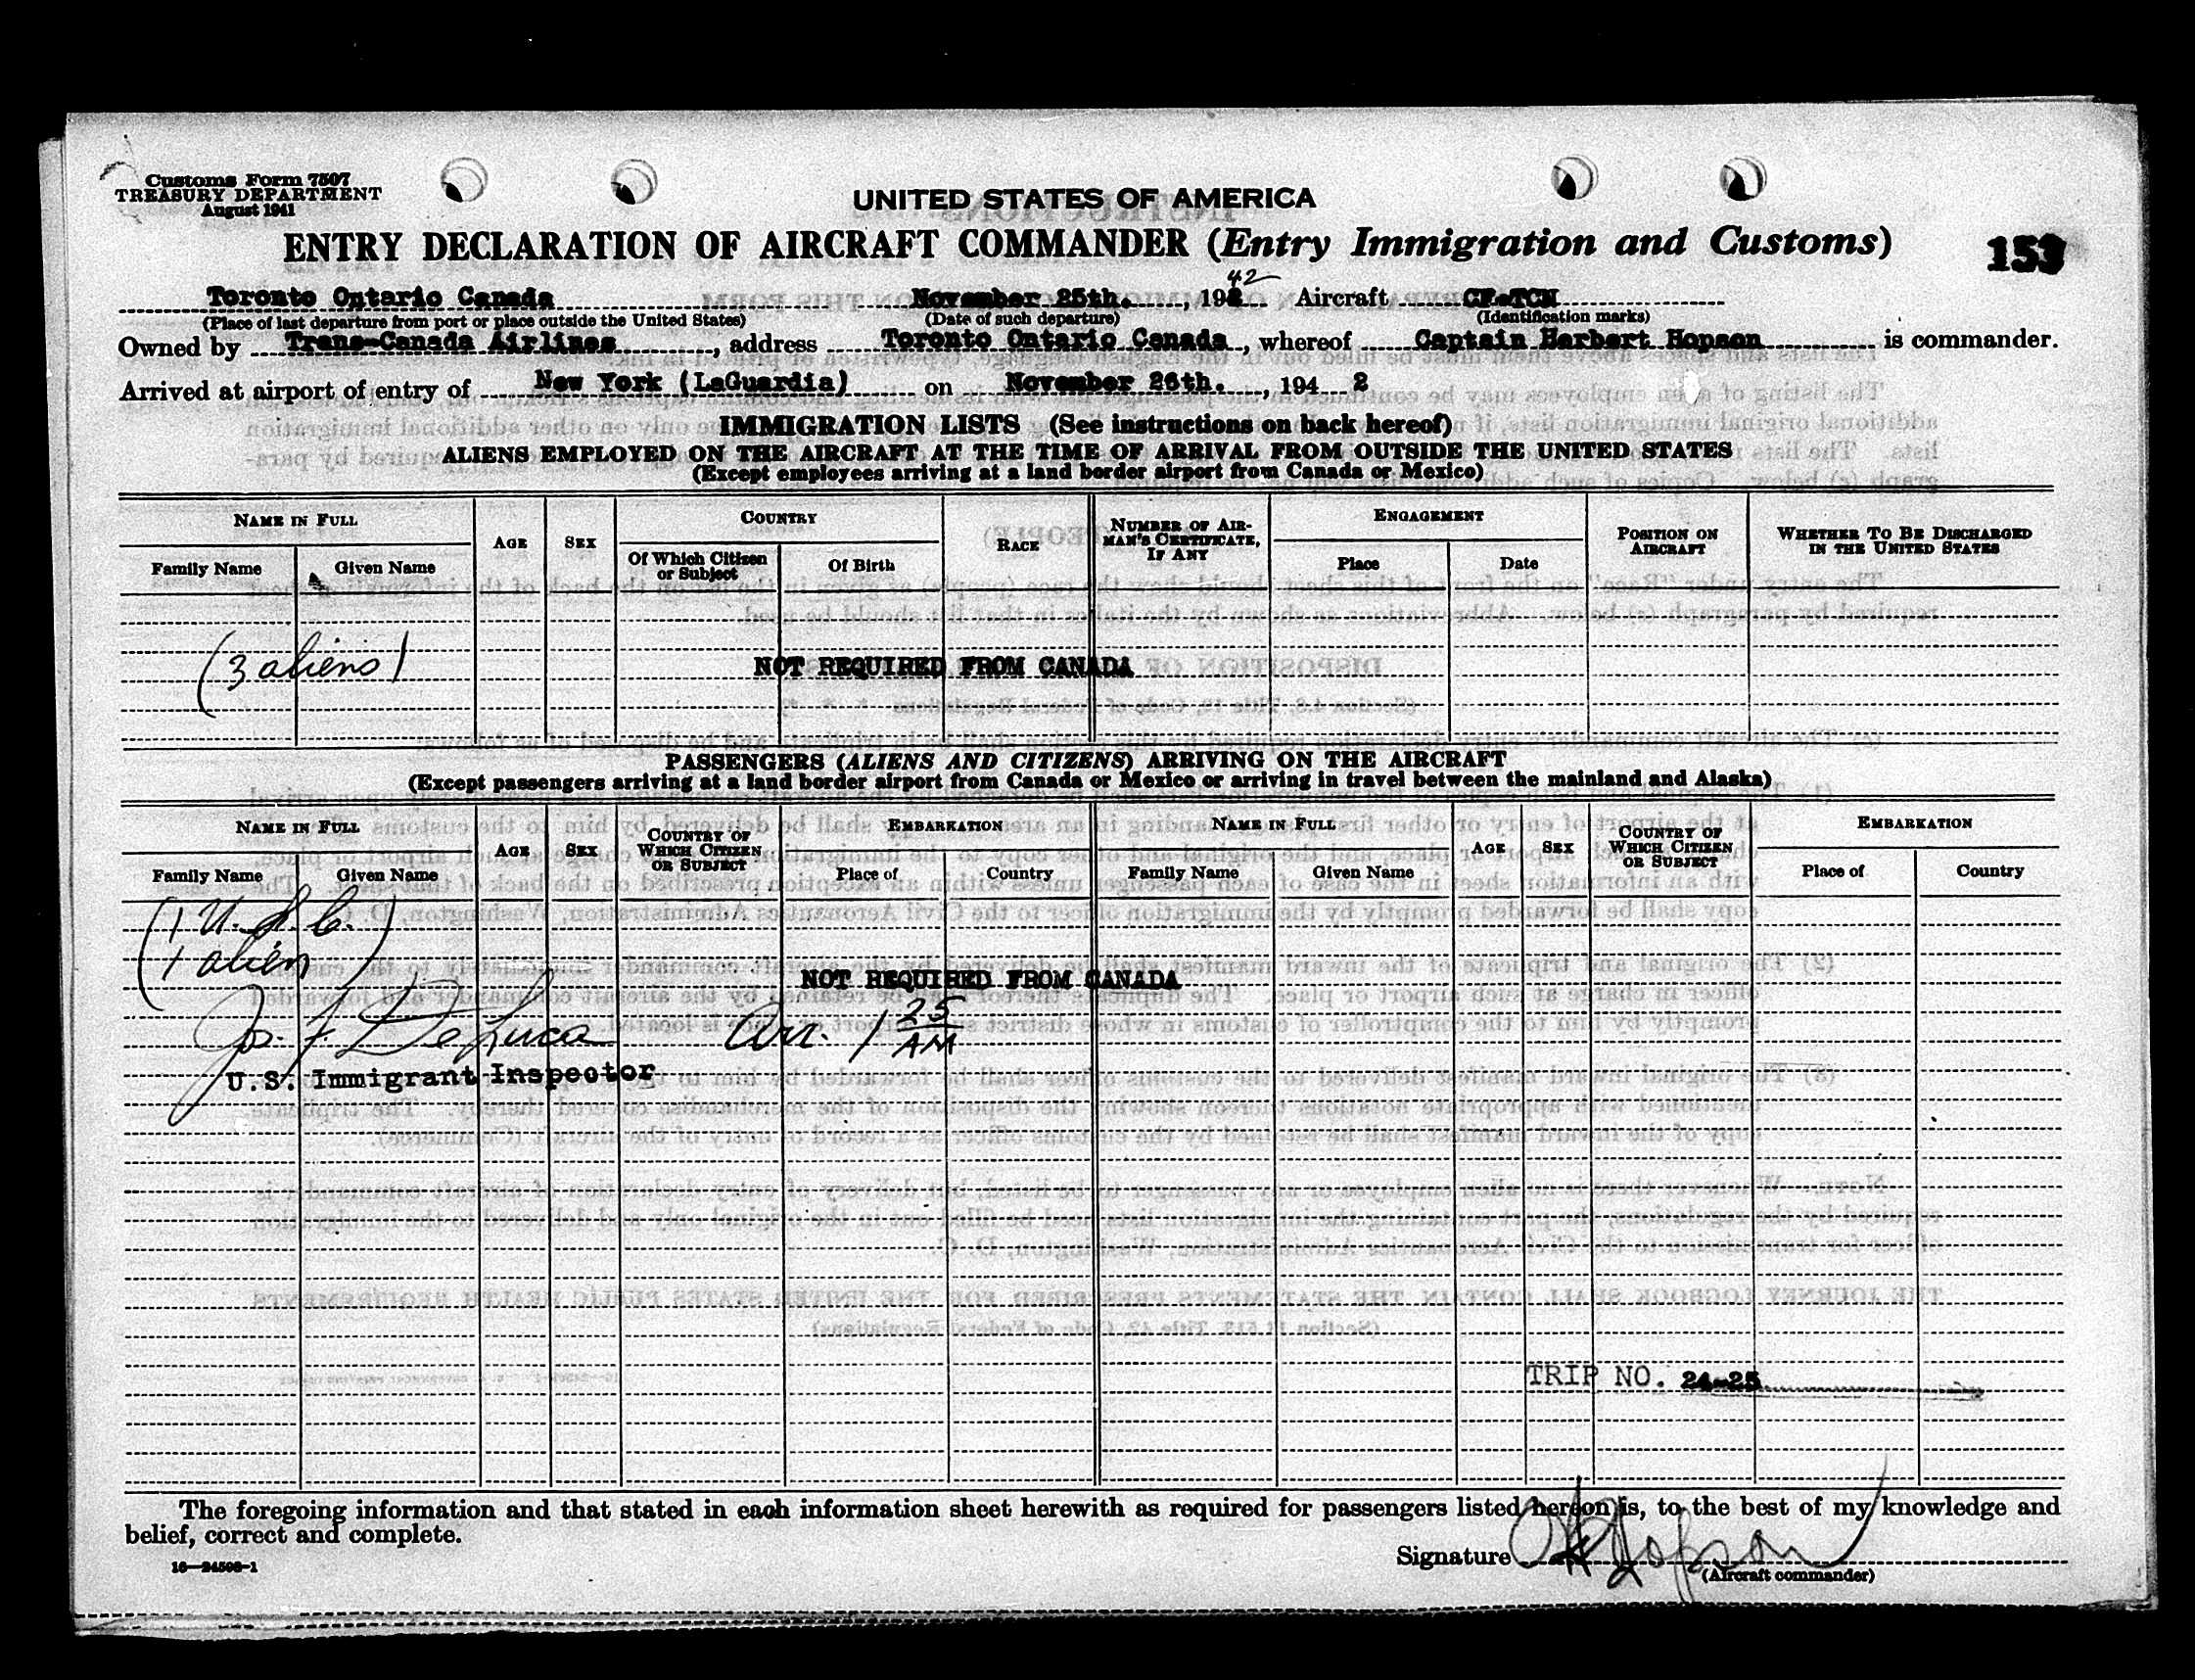 Customs Form 7507
TREASURY DEPARTMENT
August 1941
UNITED STATES OF AMERICA
ENTRY DECLARATION OF AIRCRAFT COMMANDER (Entry Immigration and Customs)
153
42
Toronto Ontario Canada November 25th. , 194 Aircraft CF-TCN
(Place of last departure from port or place outside the United States) (Date of such departure) (Identification marks)
Owned by Trans-Canada Airlines , address Toronto Ontario Canada , whereof Captain Herbert Hopson is commander.
Arrived at airport of entry of New York (LaGuardia) on November 26th. , 194 2
IMMIGRATION LISTS (See instructions on back hereof)
ALIENS EMPLOYED ON THE AIRCRAFT AT THE TIME OF ARRIVAL FROM OUTSIDE THE UNITED STATES
(Except employees arriving at a land border airport from Canada or Mexico)
NAME IN FULL AGE SEX COUNTRY RACE NUMBER OF AIRMAN'S CERTIFICATE, IF ANY ENGAGEMENT POSITION ON AIRCRAFT WHETHER TO BE DISCHARGED IN THE UNITED STATES
Family Name Given Name Of Which Citizen or Subject Of Birth Place Date
(3 aliens) NOT REQUIRED FROM CANADA
PASSENGERS (ALIENS AND CITIZENS) ARRIVING ON THE AIRCRAFT
(Except passengers arriving at a land border airport from Canada or Mexico or arriving in travel between the mainland and Alaska)
NAME IN FULL AGE SEX COUNTRY OF WHICH CITIZEN OR SUBJECT EMBARKATION NAME IN FULL AGE SEX COUNTRY OF WHICH CITIZEN OR SUBJECT EMBARKATION
Family Name Given Name Place of Country Family Name Given Name Place of Country
(1 U.S.C.
1 alien)
NOT REQUIRED FROM CANADA
Jos. F. DeLuca Arr. 1 25 AM
U.S. Immigrant Inspector
TRIP NO. 24-25
The foregoing information and that stated in each information sheet herewith as required for passengers listed hereon is, to the best of my knowledge and
belief, correct and complete.
Signature H Hopson
(Aircraft commander)
16—24508-1